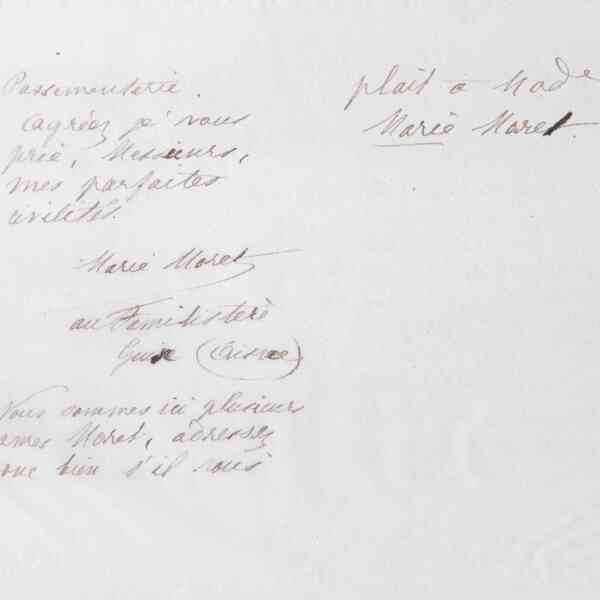 Passementerie.
Agréez je vous
prie, Messieurs,
mes parfaites
civilités.
Marie Moret
au Familistère
Guise (Aisne)
Nous sommes ici plusieurs
ames Moret, adressez
onc bien s'il vous
plait à Made
Marie Moret.